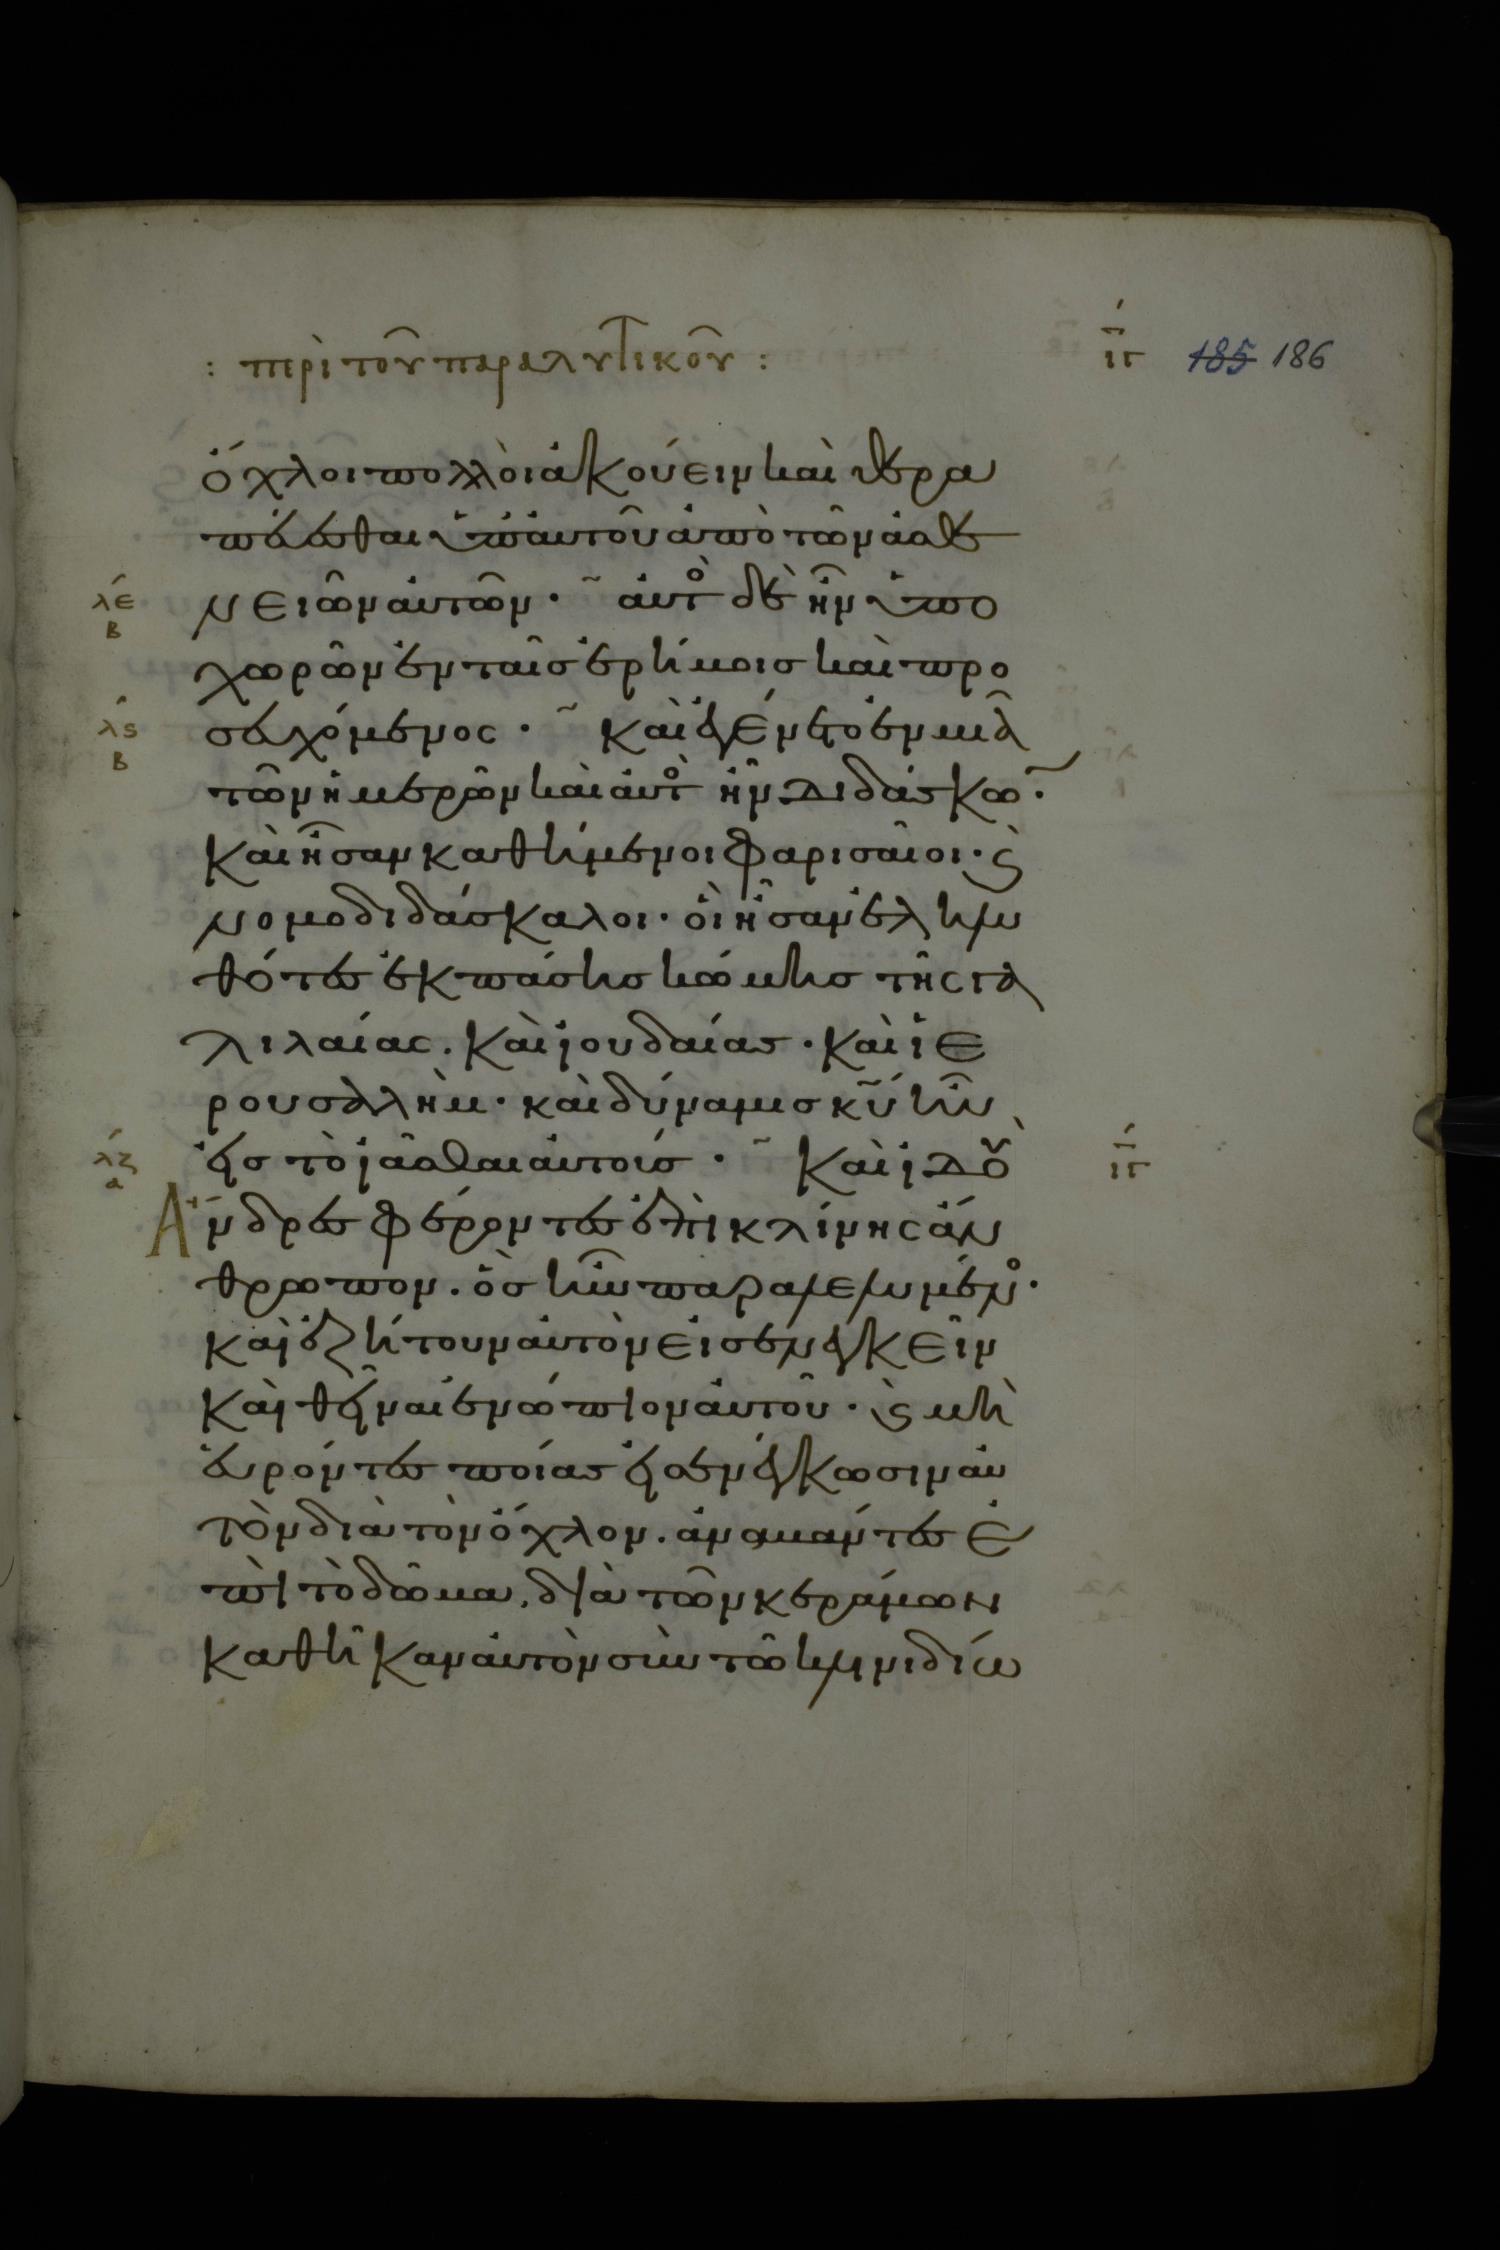 : περὶ τοῦ παραλυτικοῦ : ιγ 185 186
ὄχλοι πολλοὶ ἀκούειν καὶ θερα
πεύεσθαι ὑπ' αὐτοῦ ἀπὸ τῶν ἀσθε
λε β νειῶν αὐτῶν · αὐτὸ δὲ ἦν ὑπο
χωρῶν ἐν ταῖς ἐρήμοις καὶ προ
λϛ β σευχόμενος · καὶ ἐγένετο ἐν μιᾶ
τῶν ἡμερῶν καὶ αὐτὸ ἦν διδάσκω ·
καὶ ἦσαν καθήμενοι φαρισαῖοι · ϛ
νομοδιδάσκαλοι · οἳ ἦσαν ἐλημ
θότες ἐκ πάσης κώμης τῆς γα
λιλαίας . καὶ ἰουδαίας · καὶ ἱε
ρουσαλὴμ · καὶ δύναμις κυ ἦν
λζ α εἰς τὸ ἰᾶσθαι αὐτοίς · καὶ ἰδοὺ ιγ
Ἄνδρες φέροντες ἐπὶ κλίνης ἄν
θρωπον . ὃς ἦν παραλελυμένο ·
καὶ ἐζήτουν αὐτὸν εἰσενεγκεῖν
καὶ θεῖναι ἐνώπιον αὐτοῦ · ϛ μὴ
εὑρόντες ποίας εἰσενέγκωσιν αὐ
τὸν διὰ τὸν ὄχλον . ἀναβάντες ἐ
πὶ τὸ δῶμα . διὰ τῶν κεράμων
καθῆκαν αὐτὸν σὺν τῶ κλινιδίω